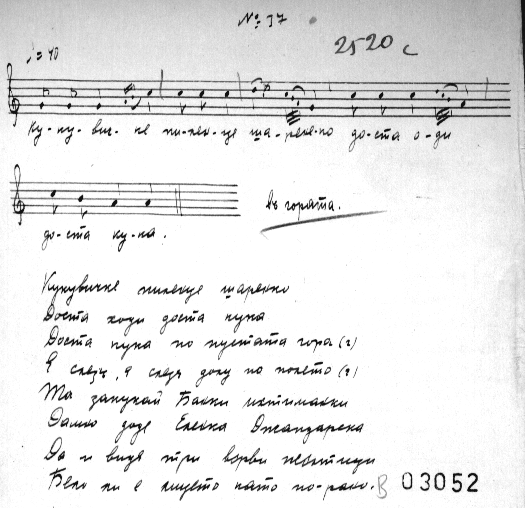 № 37
2520 с
♩ = 40
Ку-ку-вич-ке пи-лен-це ша-рен-ко до-ста о-ди
до-ста ку-ка.
въ гората.
Кукувичке пиленце шаренко
Доста ходи доста кука
Доста кука по пустата гора (2)
Я слезъ, я слезъ долу по полето (2)
Та закукай
Дамно доде Еленка
Да и виде три
Бело ли е лицето като по-рано.
В 03052